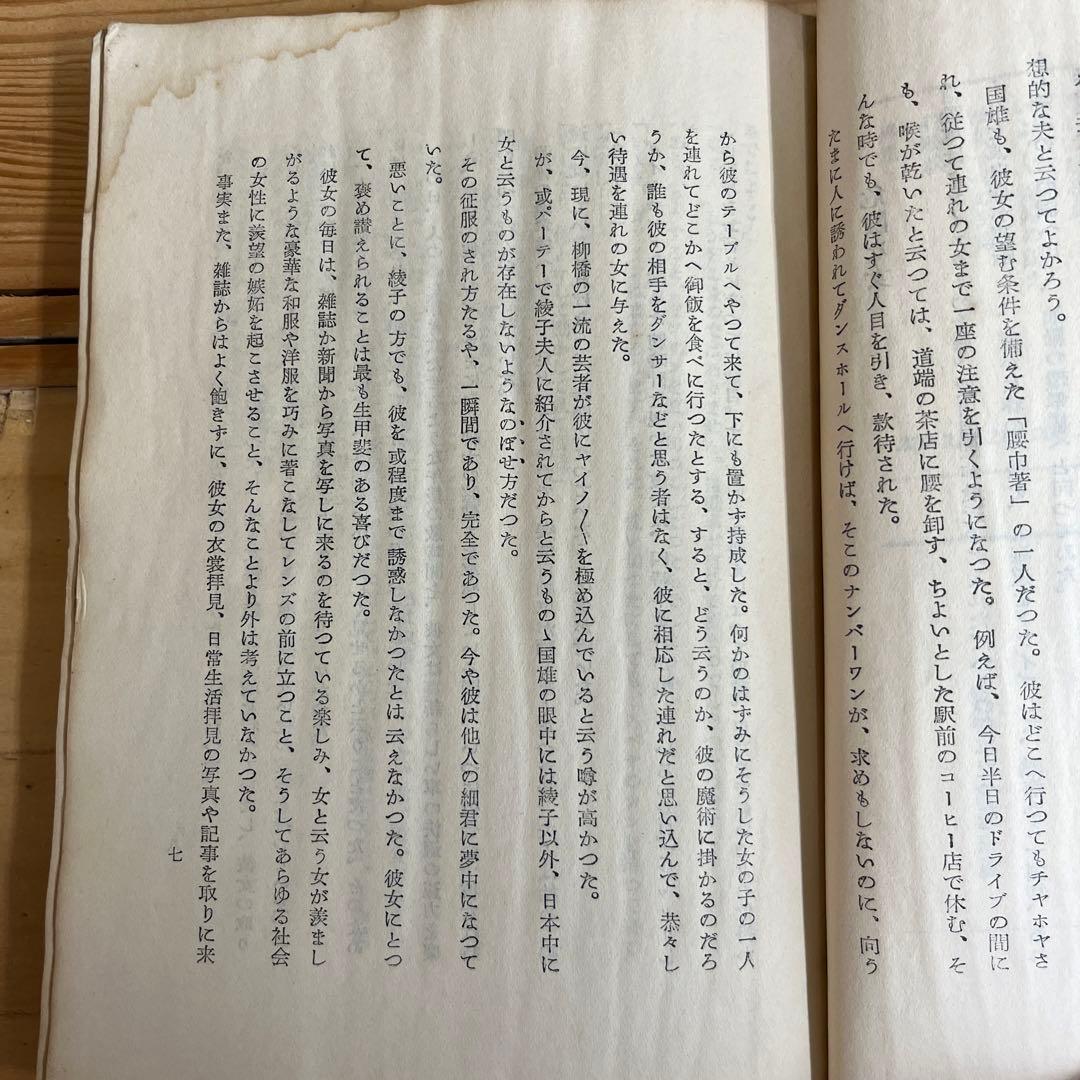 想的な夫と云つてよかろう。
国雄も、彼女の望む条件を備えた「腰巾著」の一人だつた。彼はどこへ行つてもチヤホヤさ
れ、従つて連れの女まで一座の注意を引くようになつた。例えば、今日半日のドライブの間に
も、喉が乾いたと云つては、道端の茶店に腰を卸す、ちよいとした駅前のコーヒー店で休む、そ
んな時でも、彼はすぐ人目を引き、款待された。
たまに人に誘われてダンスホールへ行けば、そこのナンバーワンが、求めもしないのに、向う
から彼のテーブルへやつて来て、下にも置かず持成した。何かのはずみにそうした女の子の一人
を連れてどこかへ御飯を食べに行つたとする、すると、どう云うのか、彼の魔術に掛かるのだろ
うか、誰も彼の相手をダンサーなどと思う者はなく、彼に相応した連れだと思い込んで、恭々し
い待遇を連れの女に与えた。
今、現に、柳橋の一流の芸者が彼にヤイノ〳〵を極め込んでいると云う噂が高かつた。
が、或パーテーで綾子夫人に紹介されてからと云うものゝ国雄の眼中には綾子以外、日本中に
女と云うものが存在しないようなのぼせ方だつた。
その征服のされ方たるや、一瞬間であり、完全であつた。今や彼は他人の細君に夢中になつて
いた。
悪いことに、綾子の方でも、彼を或程度まで誘惑しなかつたとは云えなかつた。彼女にとつ
て、褒め讃えられることは最も生甲斐のある喜びだつた。
彼女の毎日は、雑誌か新聞から写真を写しに来るのを待つている楽しみ、女と云う女が羨まし
がるような豪華な和服や洋服を巧みに著こなしてレンズの前に立つこと、そうしてあらゆる社会
の女性に羨望の嫉妬を起こさせること、そんなことより外は考えていなかつた。
事実また、雑誌からはよく飽きずに、彼女の衣裳拝見、日常生活拝見の写真や記事を取りに来
七